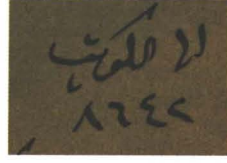 الكويت
٨٦٤٢